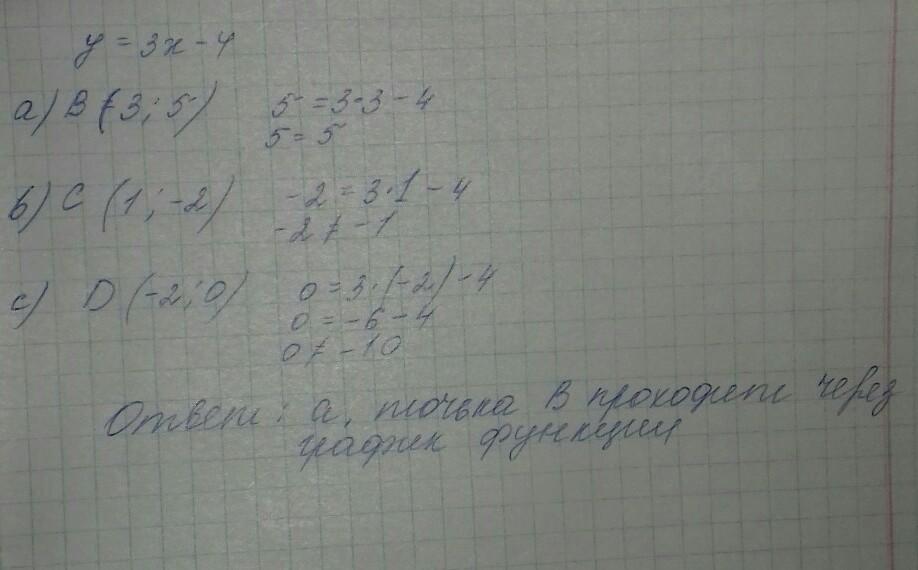 y = 3x - 4
a) B (3; 5) 5 = 3·3 - 4
5 = 5
b) C (1; -2) -2 = 3·1 - 4
-2 ≠ -1
c) D (-2; 0) 0 = 3·(-2) - 4
0 = -6 - 4
0 ≠ -10
Ответ: а, точка В проходит через
график функции